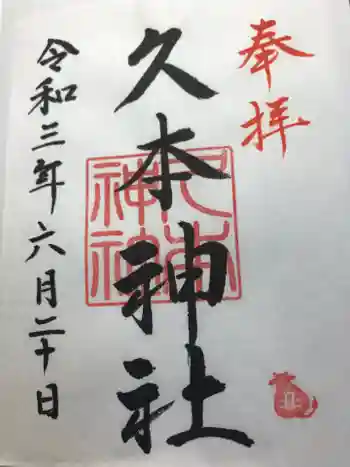 奉拝
久本神社
久本
神社
令和三年六月二十日
丑